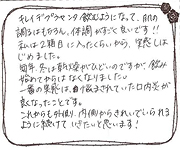 キレイデプラセンタ飲むようになって、肌の
調子はもちろん、体調がすごく良いです!!
私は2箱目に入ったくらいから、実感しは
じめました。
毎年、冬は乾燥がひどいのですが、飲み
始めてからはなくなりました。
一番の実感は、繰り返されていた口内炎が
良くなったことです。
これからも外側、内側からきれいでいられる
ように続けていきたいと思います!